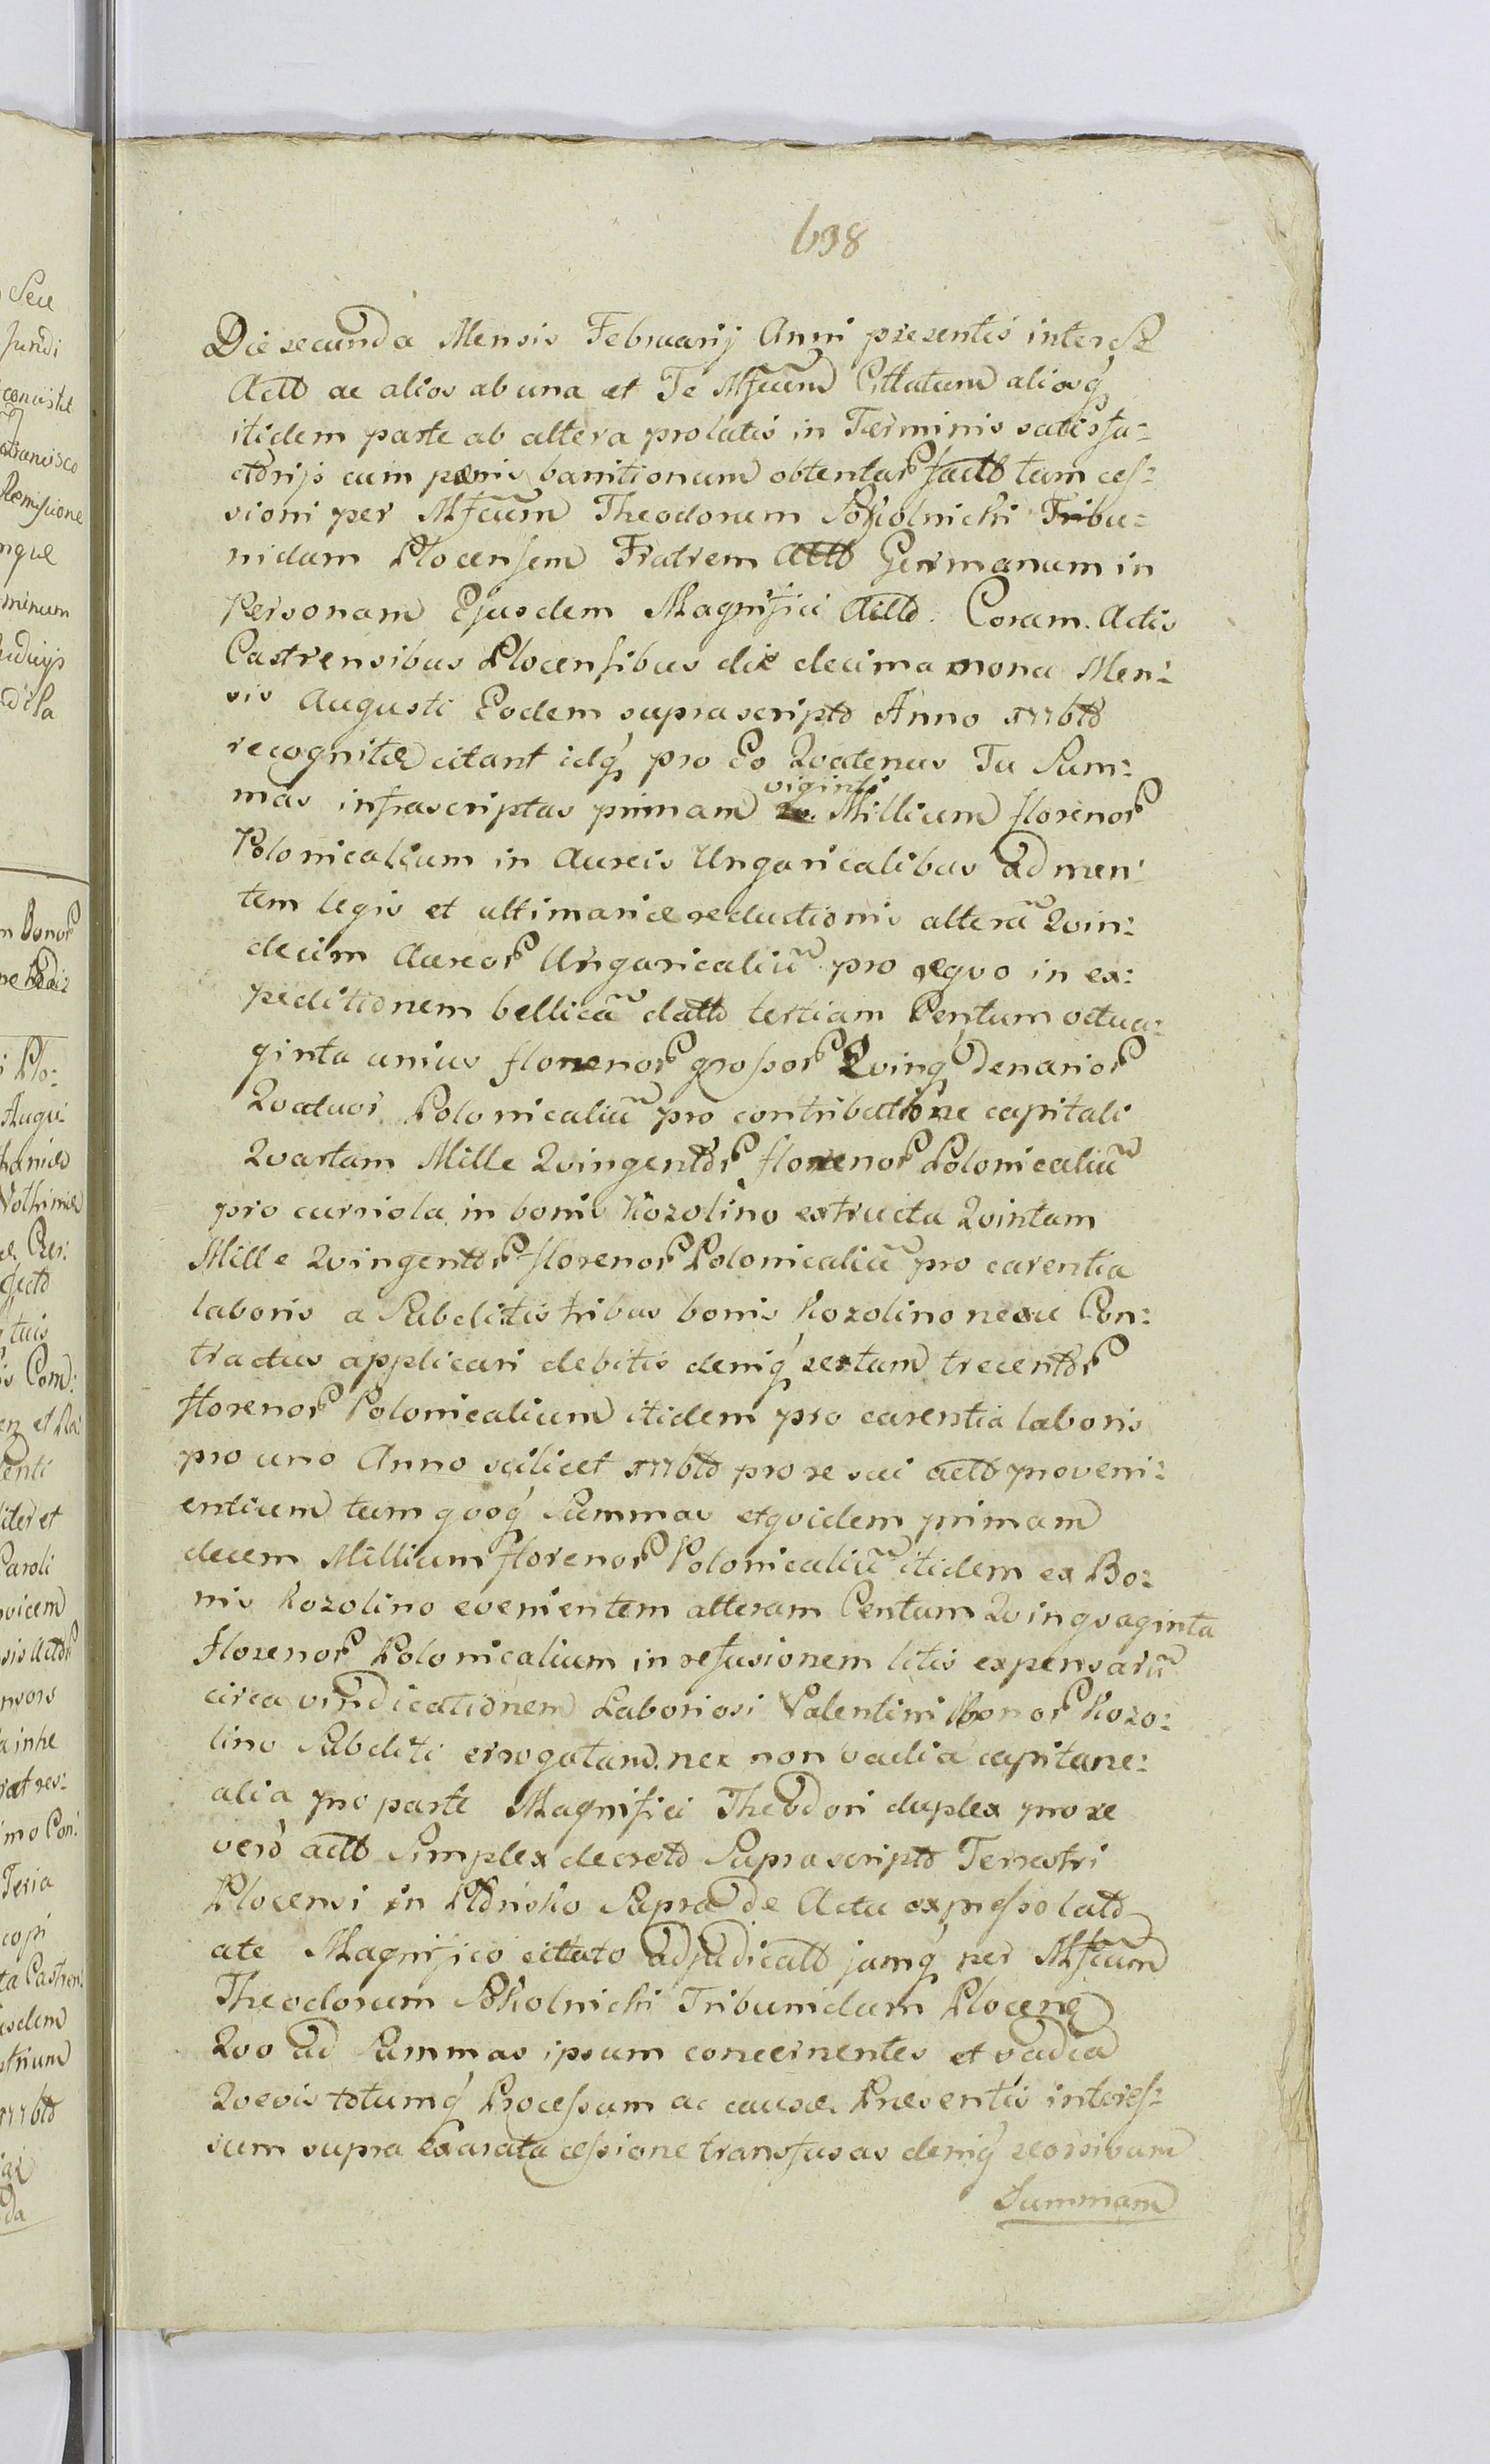 638
Die secunda Mensis Februarij Anni presentis inter
Actt ac alios ab una et Te Mfcum Cittatum aliosq́
itidem parte ab altera prolatis in Terminis satisfa:
ctorijs cum pænis banitionum obtentar factt tum ces:
sioni per Mfcum Theodorum Sokolnicki Tribu:
nidam Plocensem Fratrem Actt Germanum in
Personam Ejusdem Magnifici Actt. Coram Actis
Castrensibus Plocensibus die decima nona Men:
sis Augusti Eodem suprascripto Anno
recognitæ citant idq́ pro Eo Qvatenus Tu Sum:
viginti
mas infrascriptas primam 20. Millium florenor
Polonicalium in Aureis Ungaricalibus ad men:
tem legis et ultimariæ reductionis alterã Qvin:
decim Aureor Ungaricaliũ pro eqvo in ex:
peditionem bellicã datto tertiam Centum octua:
ginta unius florenor grossor Qvinq́ denarior
Qvatuor Polonicaliũ pro contributione capitali
Qvartam Mille Qvingentor florenor Polonicaliũ
pro curriola in bonis Kozolino extructa Qvintam
Mille Qvingentor florenor Polonicaliũ pro carentia
laboris a Subditis tribus bonis Kozolino nexu Con:
tractus applicari debitis deniq́ sextam trecentor
florenor Polonicalium itidem pro carentia laboris
pro uno Anno scilicet pro re sui actt proveni:
entium tum qvoq́ Summas etqvidem primam
decem Millium florenor Polonicaliũ itidem ex Bo:
nis Kozolino evenientem alteram Centum Qvinqvaginta
florenor Polonicalium in refusionem litis expensarũ
circa vindicationem Laboriosi Valentini Bonor Kozo:
lino Subditi errogatam nec non vadia capitane:
alia pro parte Magnifici Theodori duplex pro re
verò actt Simplex decreto Suprascripto Terrestri
Plocensi in Plonsko Supra de Actu expresso lato
a te Magnifico cittato adjudicatt jamq́ per Mfcum
Theodorum Sokolnicki Tribunidam Plocens
Qvo ad Summas ipsum concernentes et vadia
Qvevis totumq́ Processum ac causæ Præsentis interes:
sum supra Exarata cessione transfusas deniq́ seorsivam
Summam